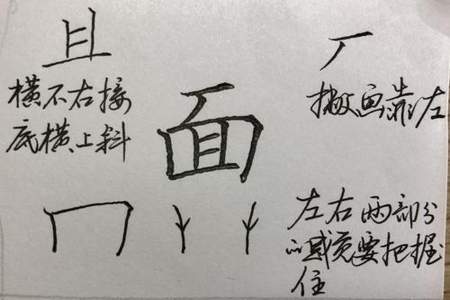 且
横不右接
底横上斜
面
丆
撇画靠左
冂
左右两部分
的感觉要把握
住